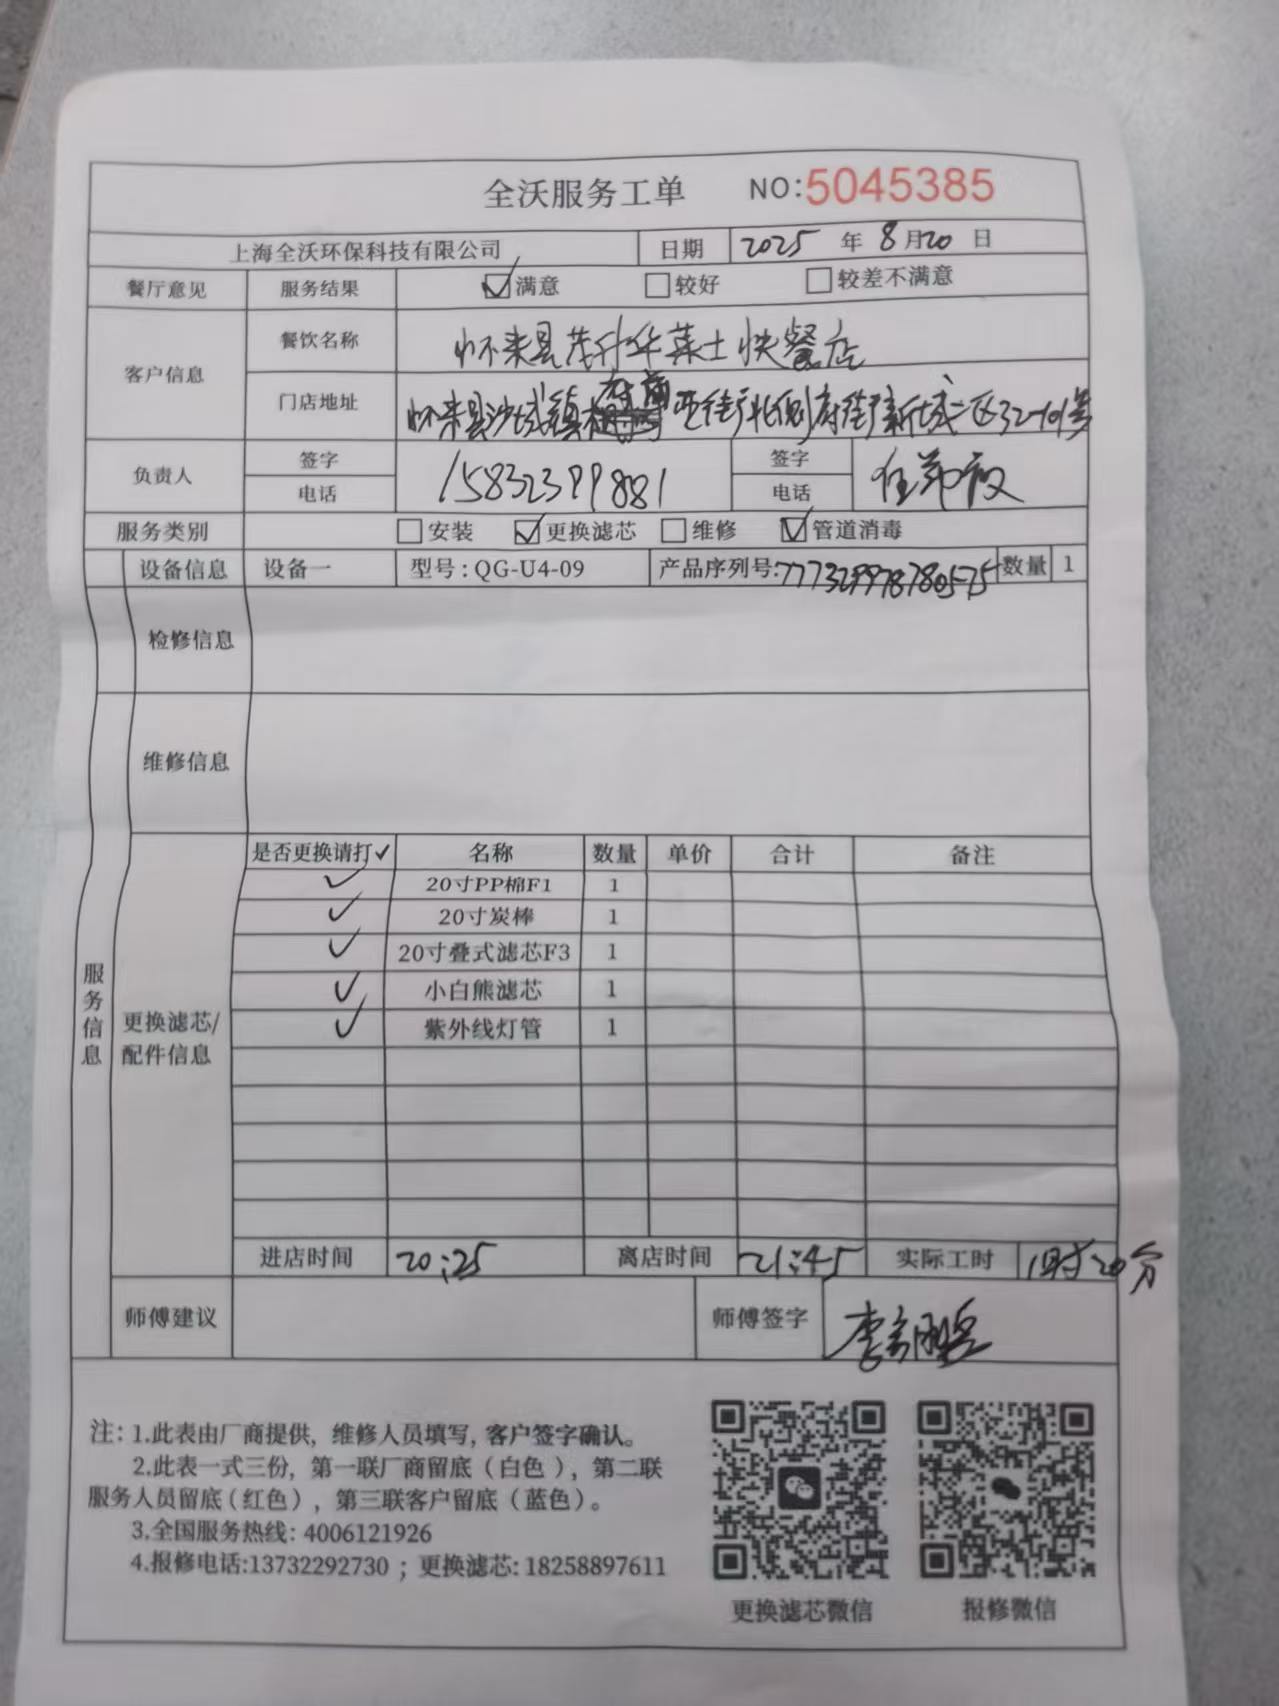 全沃服务工单 NO:5045385
上海全沃环保科技有限公司 日期 2025 年 8 月 20 日
餐厅意见 服务结果 ☑满意 □较好 □较差不满意
客户信息 餐饮名称 怀来县茂升华莱士快餐店
门店地址 怀来县沙城镇 府前西街北侧府街新城二区32-101号
负责人 签字 电话 15832399881 签字 电话
服务类别 □安装 ☑更换滤芯 □维修 ☑管道消毒
设备信息 设备一 型号:QG-U4-09 产品序列号: 数量 1
检修信息
维修信息
服务信息
更换滤芯/配件信息
是否更换请打✓ 名称 数量 单价 合计 备注
✓ 20寸PP棉F1 1
✓ 20寸炭棒 1
✓ 20寸叠式滤芯F3 1
✓ 小白熊滤芯 1
✓ 紫外线灯管 1
进店时间 20:25 离店时间 21:45 实际工时 1时20分
师傅建议 师傅签字
注: 1.此表由厂商提供, 维修人员填写, 客户签字确认。
2.此表一式三份, 第一联厂商留底(白色), 第二联
服务人员留底(红色), 第三联客户留底(蓝色)。
3.全国服务热线: 4006121926
4.报修电话:13732292730 ; 更换滤芯: 18258897611
更换滤芯微信 报修微信